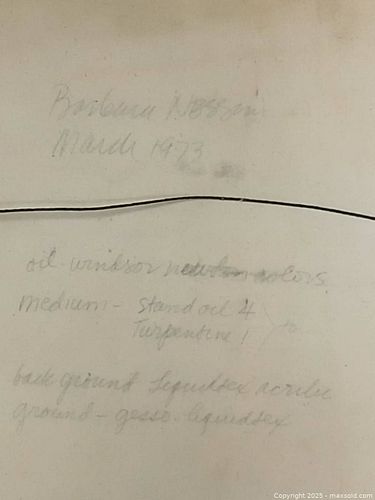 Barbara Nessim
March 1973
oil - windsor newton colors
medium - stand oil 4
Turpentine 1
to
back ground Liquidtex acrilic
ground - gesso - liquidtex
Copyright 2025 - maxsold.com